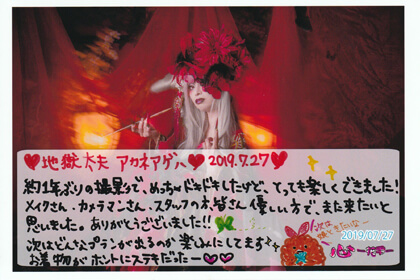 ♥地獄太夫 アカネアゲハ♥ 2019.7.27♥
約1年ぶりの撮影で、めっちゃドキドキしたけど、とっても楽しくできました!
メイクさん、カメラマンさん、スタッフの皆さん優しい方で、また来たいと
思いました。ありがとうございました!!
次はどんなプランが出るのか楽しみにしてます
お着物がホントにステキだったー♥♥
2019/07/27